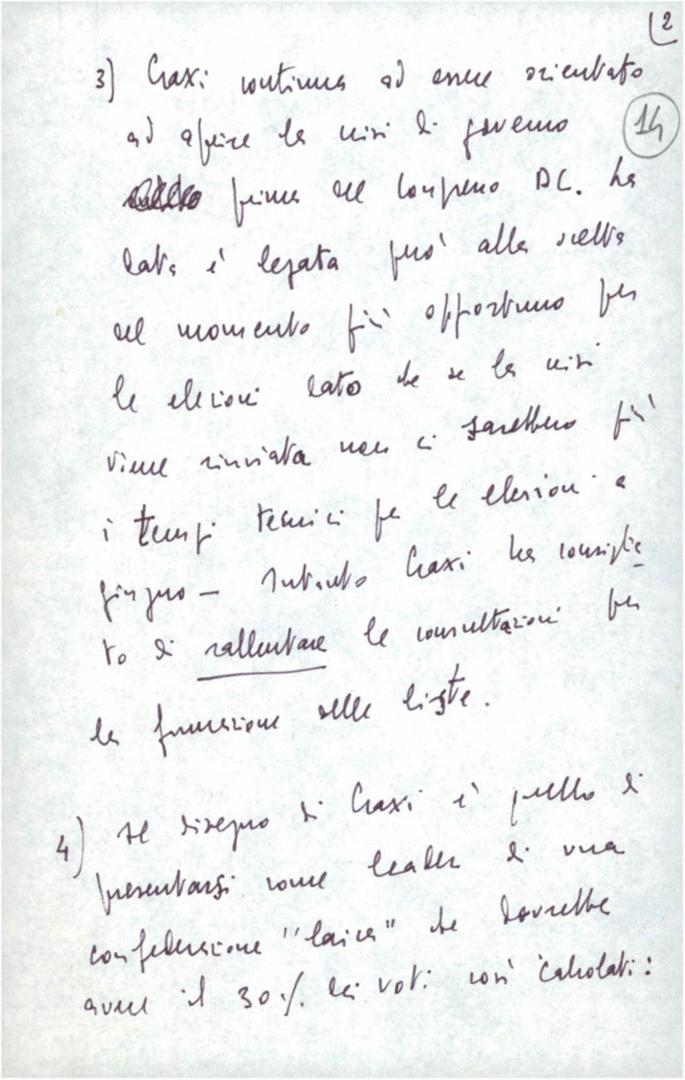 2
14
3) Craxi continua ad essere orientato
ad aprire la crisi di governo
prima del Congresso DC. La
data è legata però alla scelta
del momento più opportuno per
le elezioni dato che se la crisi
viene rinviata non ci sarebbero più
i tempi tecnici per le elezioni a
giugno — Intanto Craxi ha consiglia
to di rallentare le consultazioni per
la formazione delle liste.
4) Il disegno di Craxi è quello di
presentarsi come leader di una
confederazione "laica" che dovrebbe
avere il 30% dei voti così calcolati: